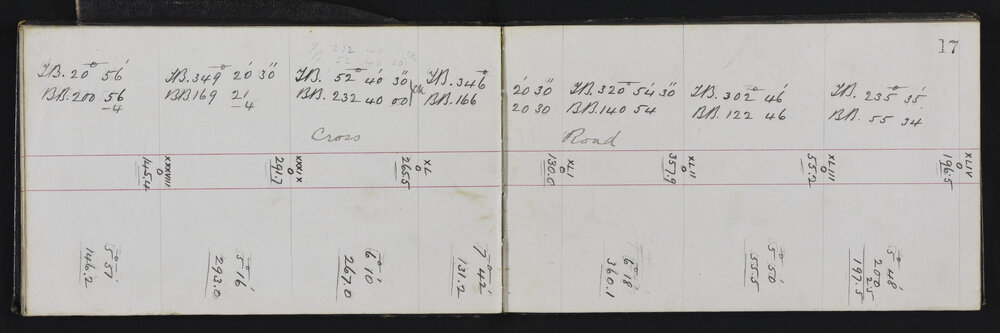 17
F.B. 20° 56'
B.B. 200 56
-4
F.B. 349° 20' 30"
B.B. 169 21
-4
F.B. 52° 40' 30"
B.B. 232 40 00
F.B. 346° 20' 30"
B.B. 166 20 30
F.B. 320° 54' 30"
B.B. 140 54
F.B. 302° 46'
B.B. 122 46
F.B. 235° 35'
B.B. 55 34
Cross Road
XXXVIII
0
145.4
XXXIX
0
291.7
XL
0
265.5
XLI
0
130.0
XLII
0
357.9
XLIII
0
55.2
XLIV
0
196.5
5° 57'
146.2
5° 16'
293.0
6° 10'
267.0
7° 42'
131.2
6° 18'
360.1
5° 50'
55.5
5° 48'
200
2.5
197.5